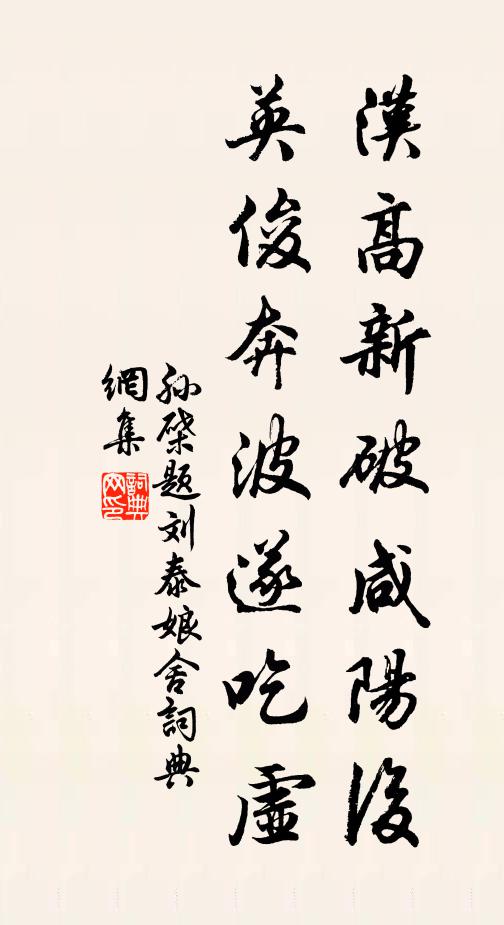 漢高新破咸陽後
英俊奔波遂吃虛
孙棨題刘泰娘舍詞典
網集
詞典
网印